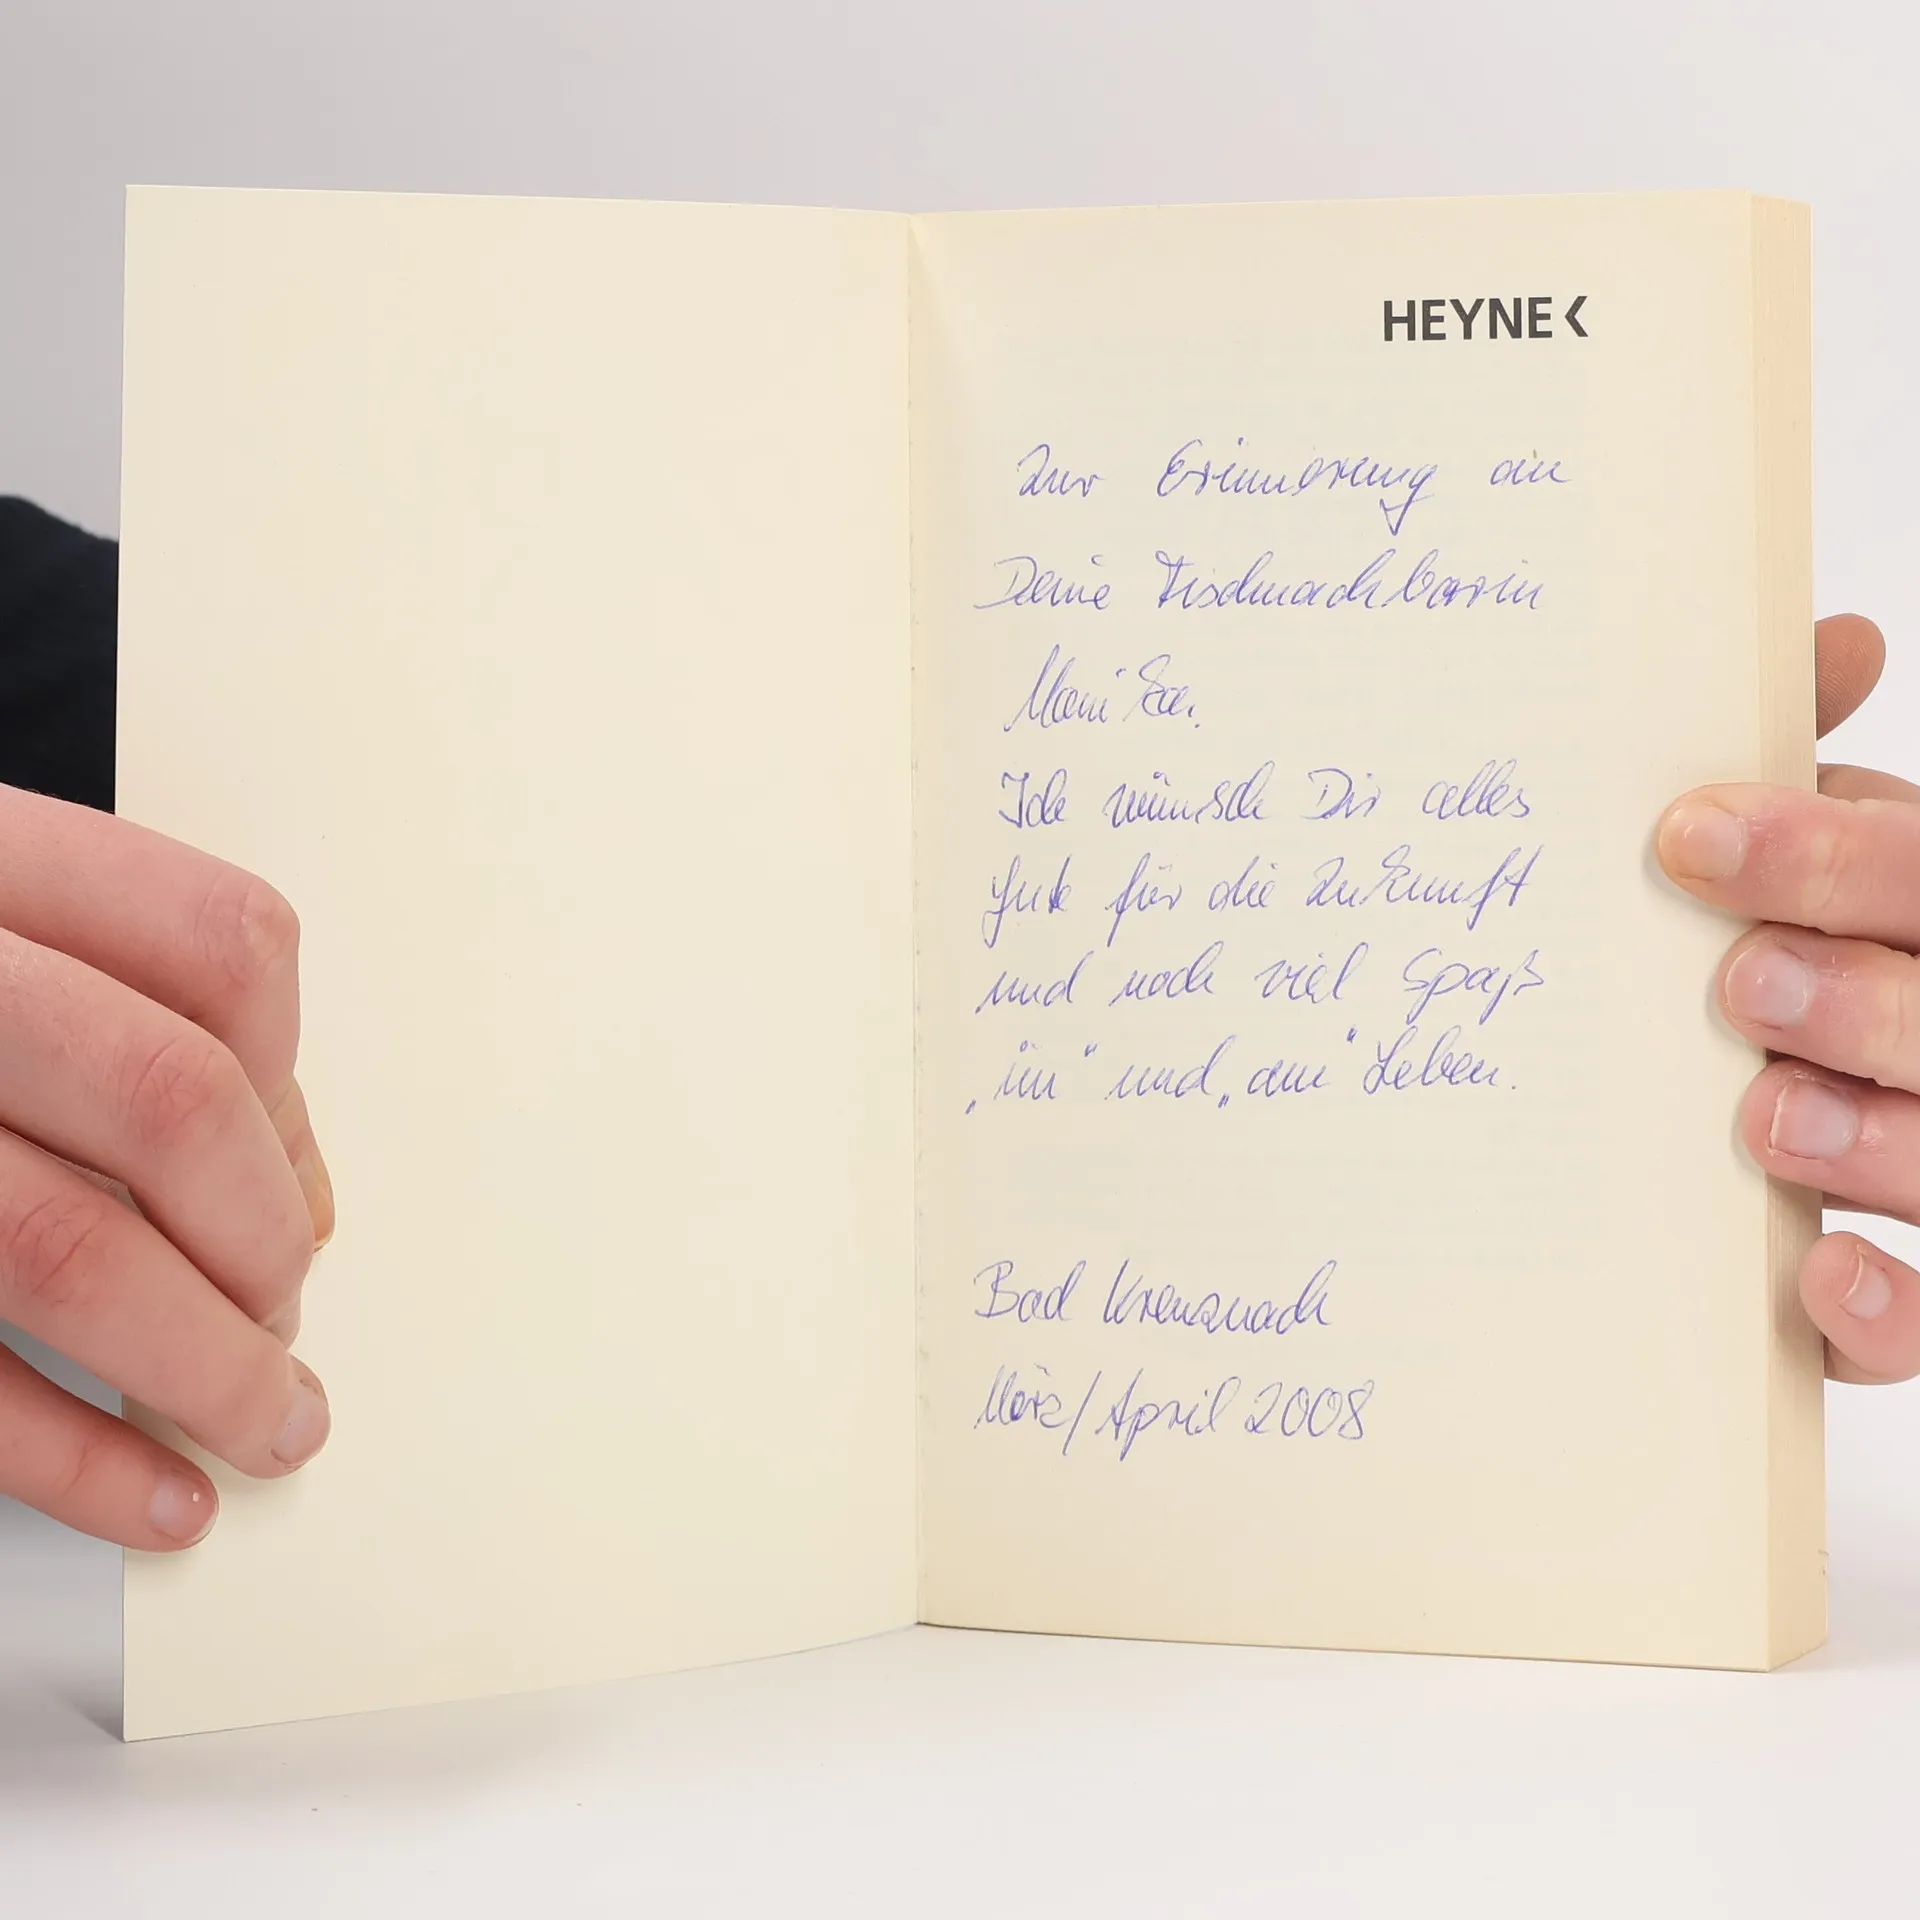 HEYNE <
Zur Erinnerung an
Deine Tischnachbarin
Monika.
Ich wünsch Dir alles
Gute für die Zukunft
und noch viel Spaß
„im“ und „am“ Leben.
Bad Kreuznach
März/April 2008